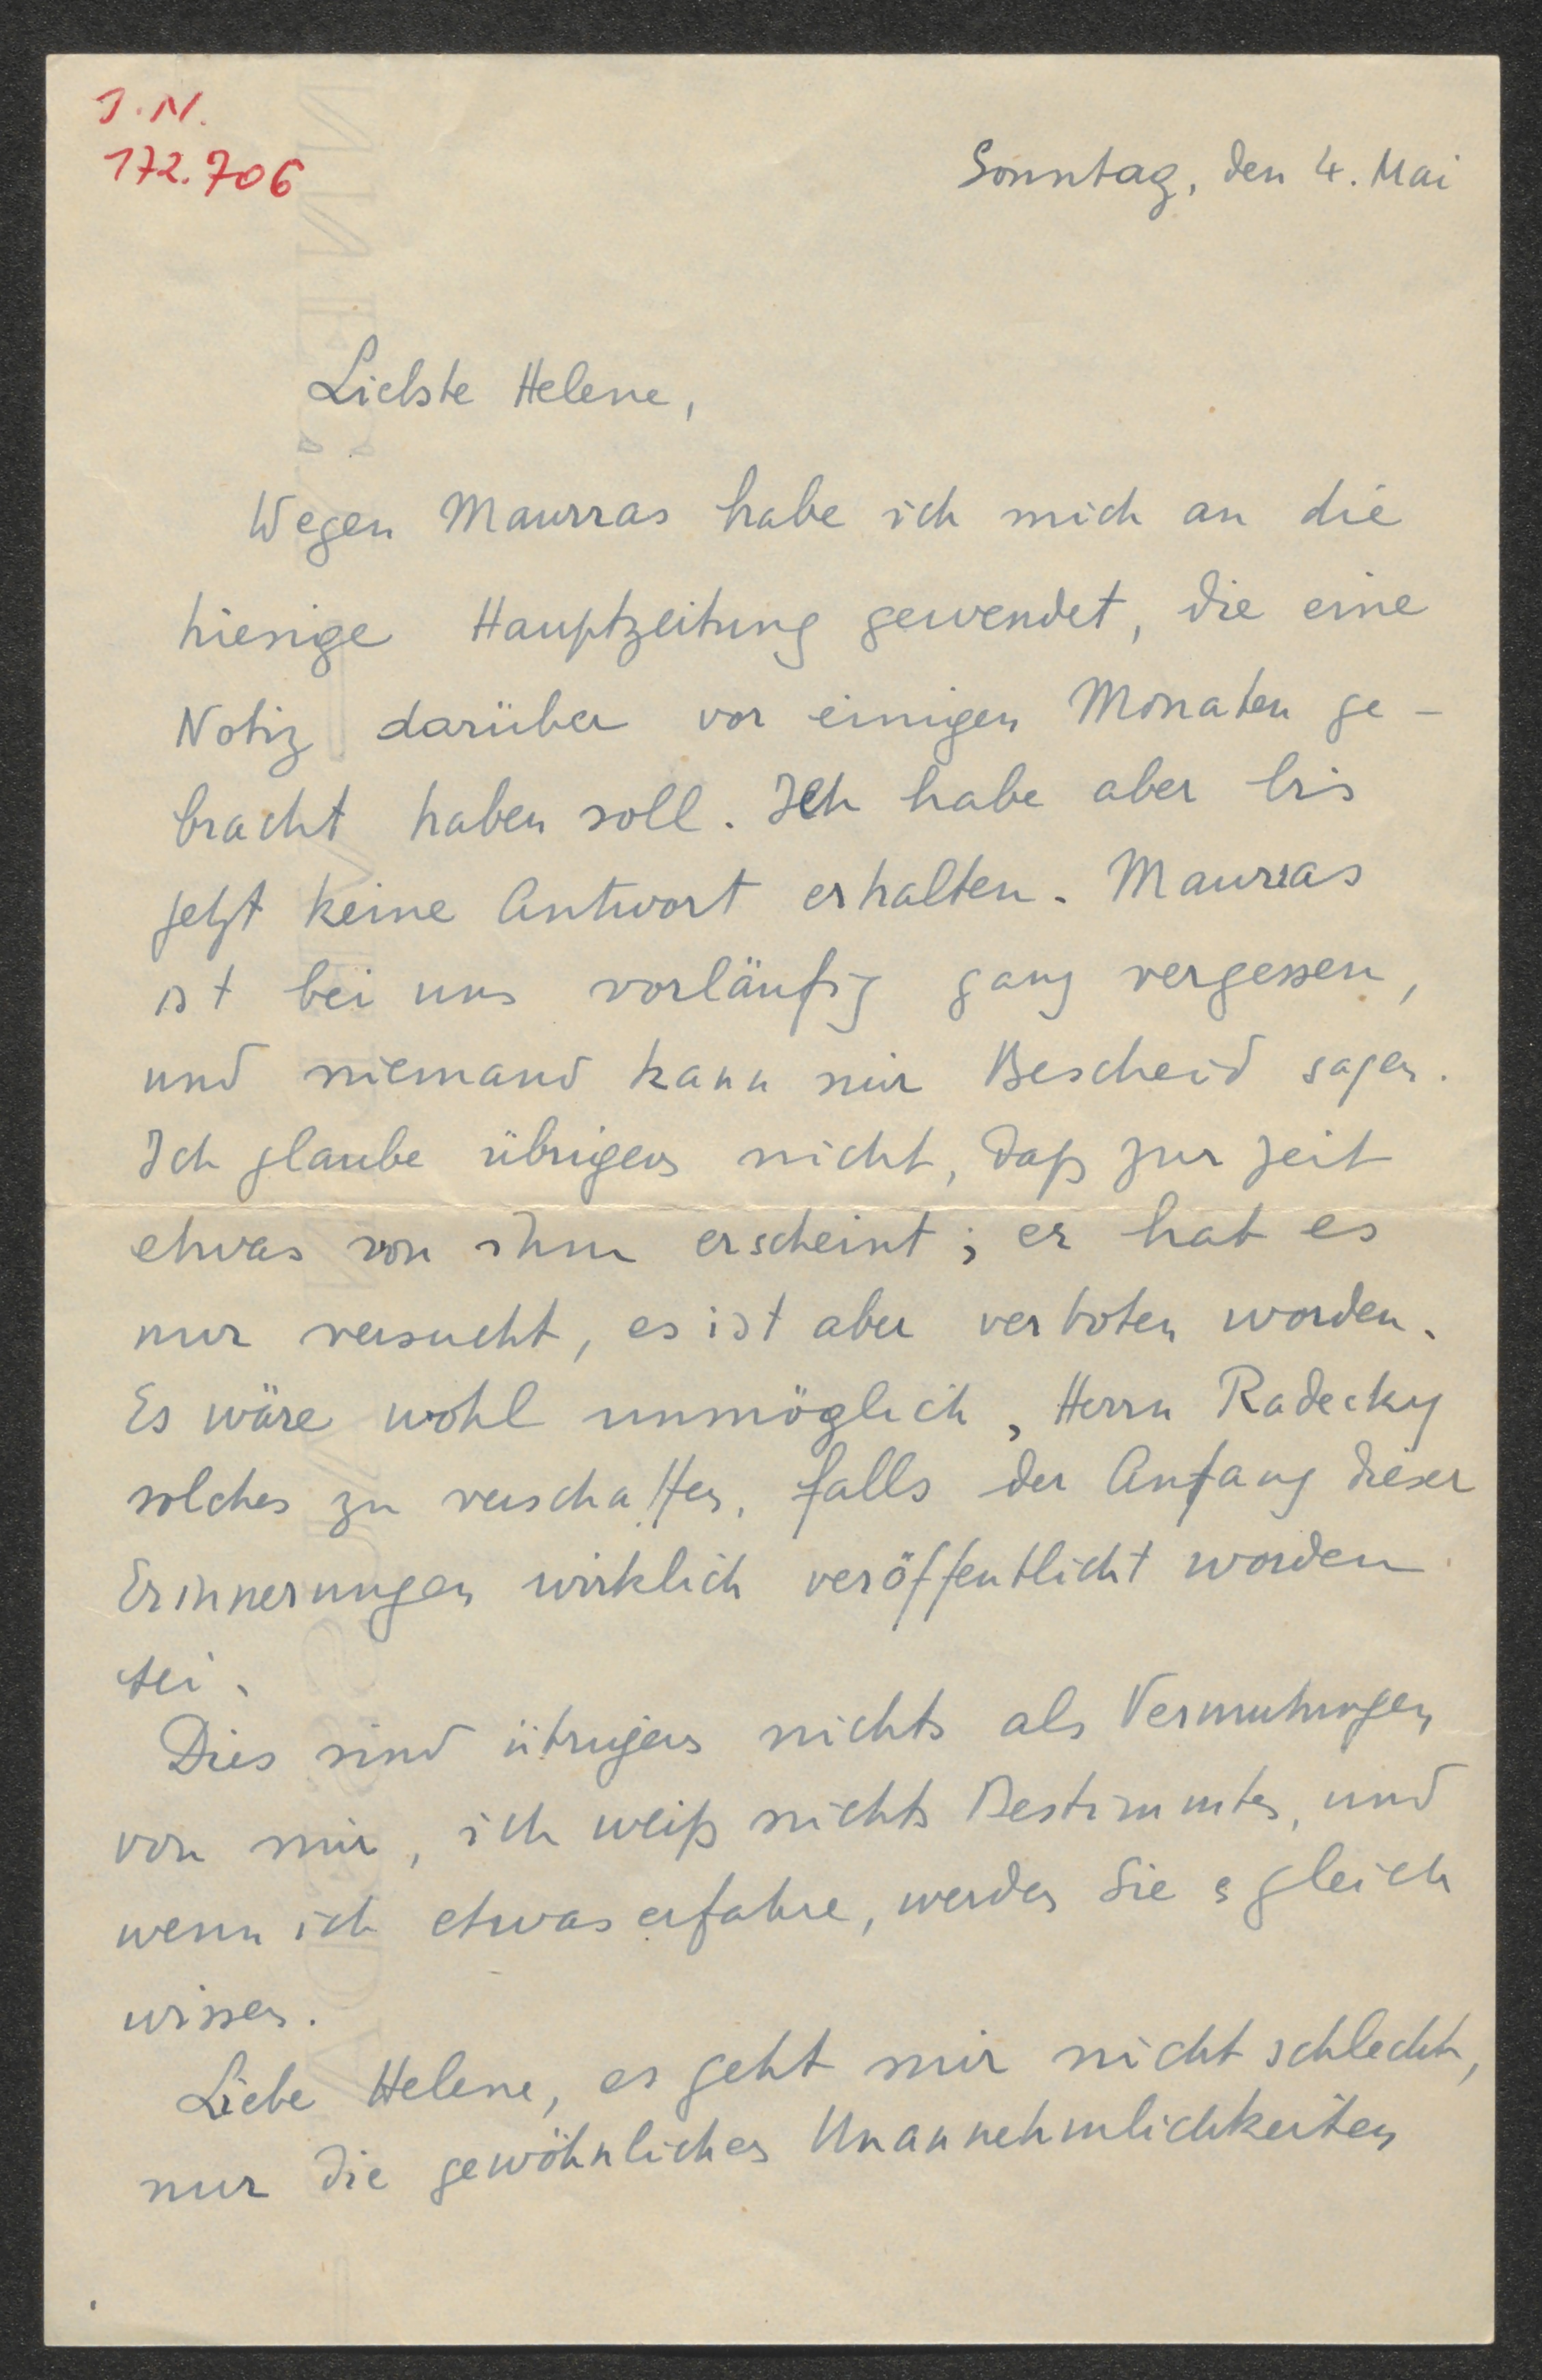 J. N.
172.706
Sonntag, den 4. Mai
Liebste Helene,
Wegen Maurras habe ich mich an die
hiesige Hauptzeitung gewendet, die eine
Notiz darüber vor einigen Monaten ge-
bracht haben soll. Ich habe aber bis
jetzt keine Antwort erhalten. Maurras
ist bei uns vorläufig ganz vergessen,
und niemand kann mir Bescheid sagen.
Ich glaube übrigens nicht, daß zur Zeit
etwas von ihm erscheint; er hat es
nur versucht, es ist aber verboten worden.
Es wäre wohl unmöglich, Herrn Radecky
solches zu verschaffen, falls der Anfang dieser
Erinnerungen wirklich veröffentlicht worden
sei.
Dies sind übrigens nichts als Vermutungen
von mir, ich weiß nichts Bestimmtes, und
wenn ich etwas erfahre, werden Sie es gleich
wissen.
Liebe Helene, es geht mir nicht schlecht,
nur die gewöhnlichen Unannehmlichkeiten